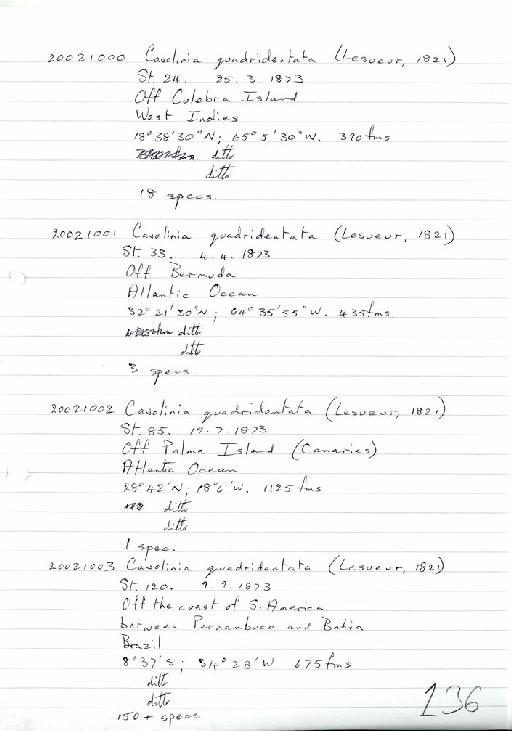 20021000 Cavolinia quadridentata (Lesueur, 1821)
St. 24. 25. 3. 1873
Off Culebra Island
West Indies
18°38'30"N; 65°5'30"W. 390 fms
ditto
ditto
18 specs.
20021001 Cavolinia quadridentata (Lesueur, 1821)
St. 33. 4. 4. 1873
Off Bermuda
Atlantic Ocean
32°21'30"N; 64°35'55"W. 435 fms
ditto
ditto
3 specs
20021002 Cavolinia quadridentata (Lesueur, 1821)
St. 85. 19. 7. 1873
Off Palma Island (Canaries)
Atlantic Ocean
28°42'N; 18°6'W. 1125 fms
ditto
ditto
1 spec.
20021003 Cavolinia quadridentata (Lesueur, 1821)
St. 120. 9. 9. 1873
Off the coast of S. America
between Pernambuco and Bahia
Brazil
8°37'S; 34°28'W 675 fms
ditto
ditto
150+ specs
136